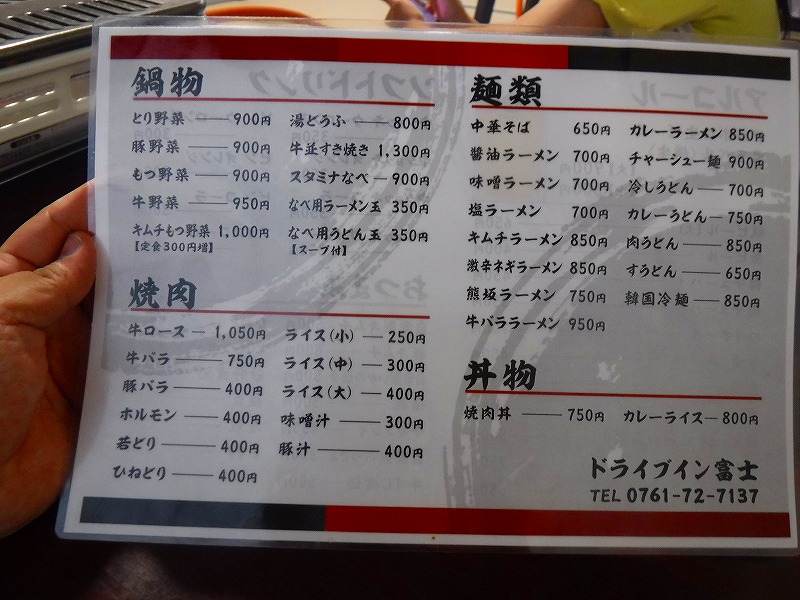 鍋物
とり野菜 900円
豚野菜 900円
もつ野菜 900円
牛野菜 950円
キムチもつ野菜 1,000円
【定食300円増】
湯どうふ 800円
牛並すき焼き 1,300円
スタミナなべ 900円
なべ用ラーメン玉 350円
なべ用うどん玉 350円
【スープ付】
焼肉
牛ロース 1,050円
牛バラ 750円
豚バラ 400円
ホルモン 400円
若どり 400円
ひねどり 400円
ライス(小) 250円
ライス(中) 300円
ライス(大) 400円
味噌汁 300円
豚汁 400円
麺類
中華そば 650円
醬油ラーメン 700円
味噌ラーメン 700円
塩ラーメン 700円
キムチラーメン 850円
激辛ネギラーメン 850円
熊坂ラーメン 750円
牛バララーメン 950円
カレーラーメン 850円
チャーシュー麺 900円
冷しうどん 700円
カレーうどん 750円
肉うどん 850円
すうどん 650円
韓国冷麺 850円
丼物
焼肉丼 750円
カレーライス 800円
ドライブイン富士
TEL 0761-72-7137